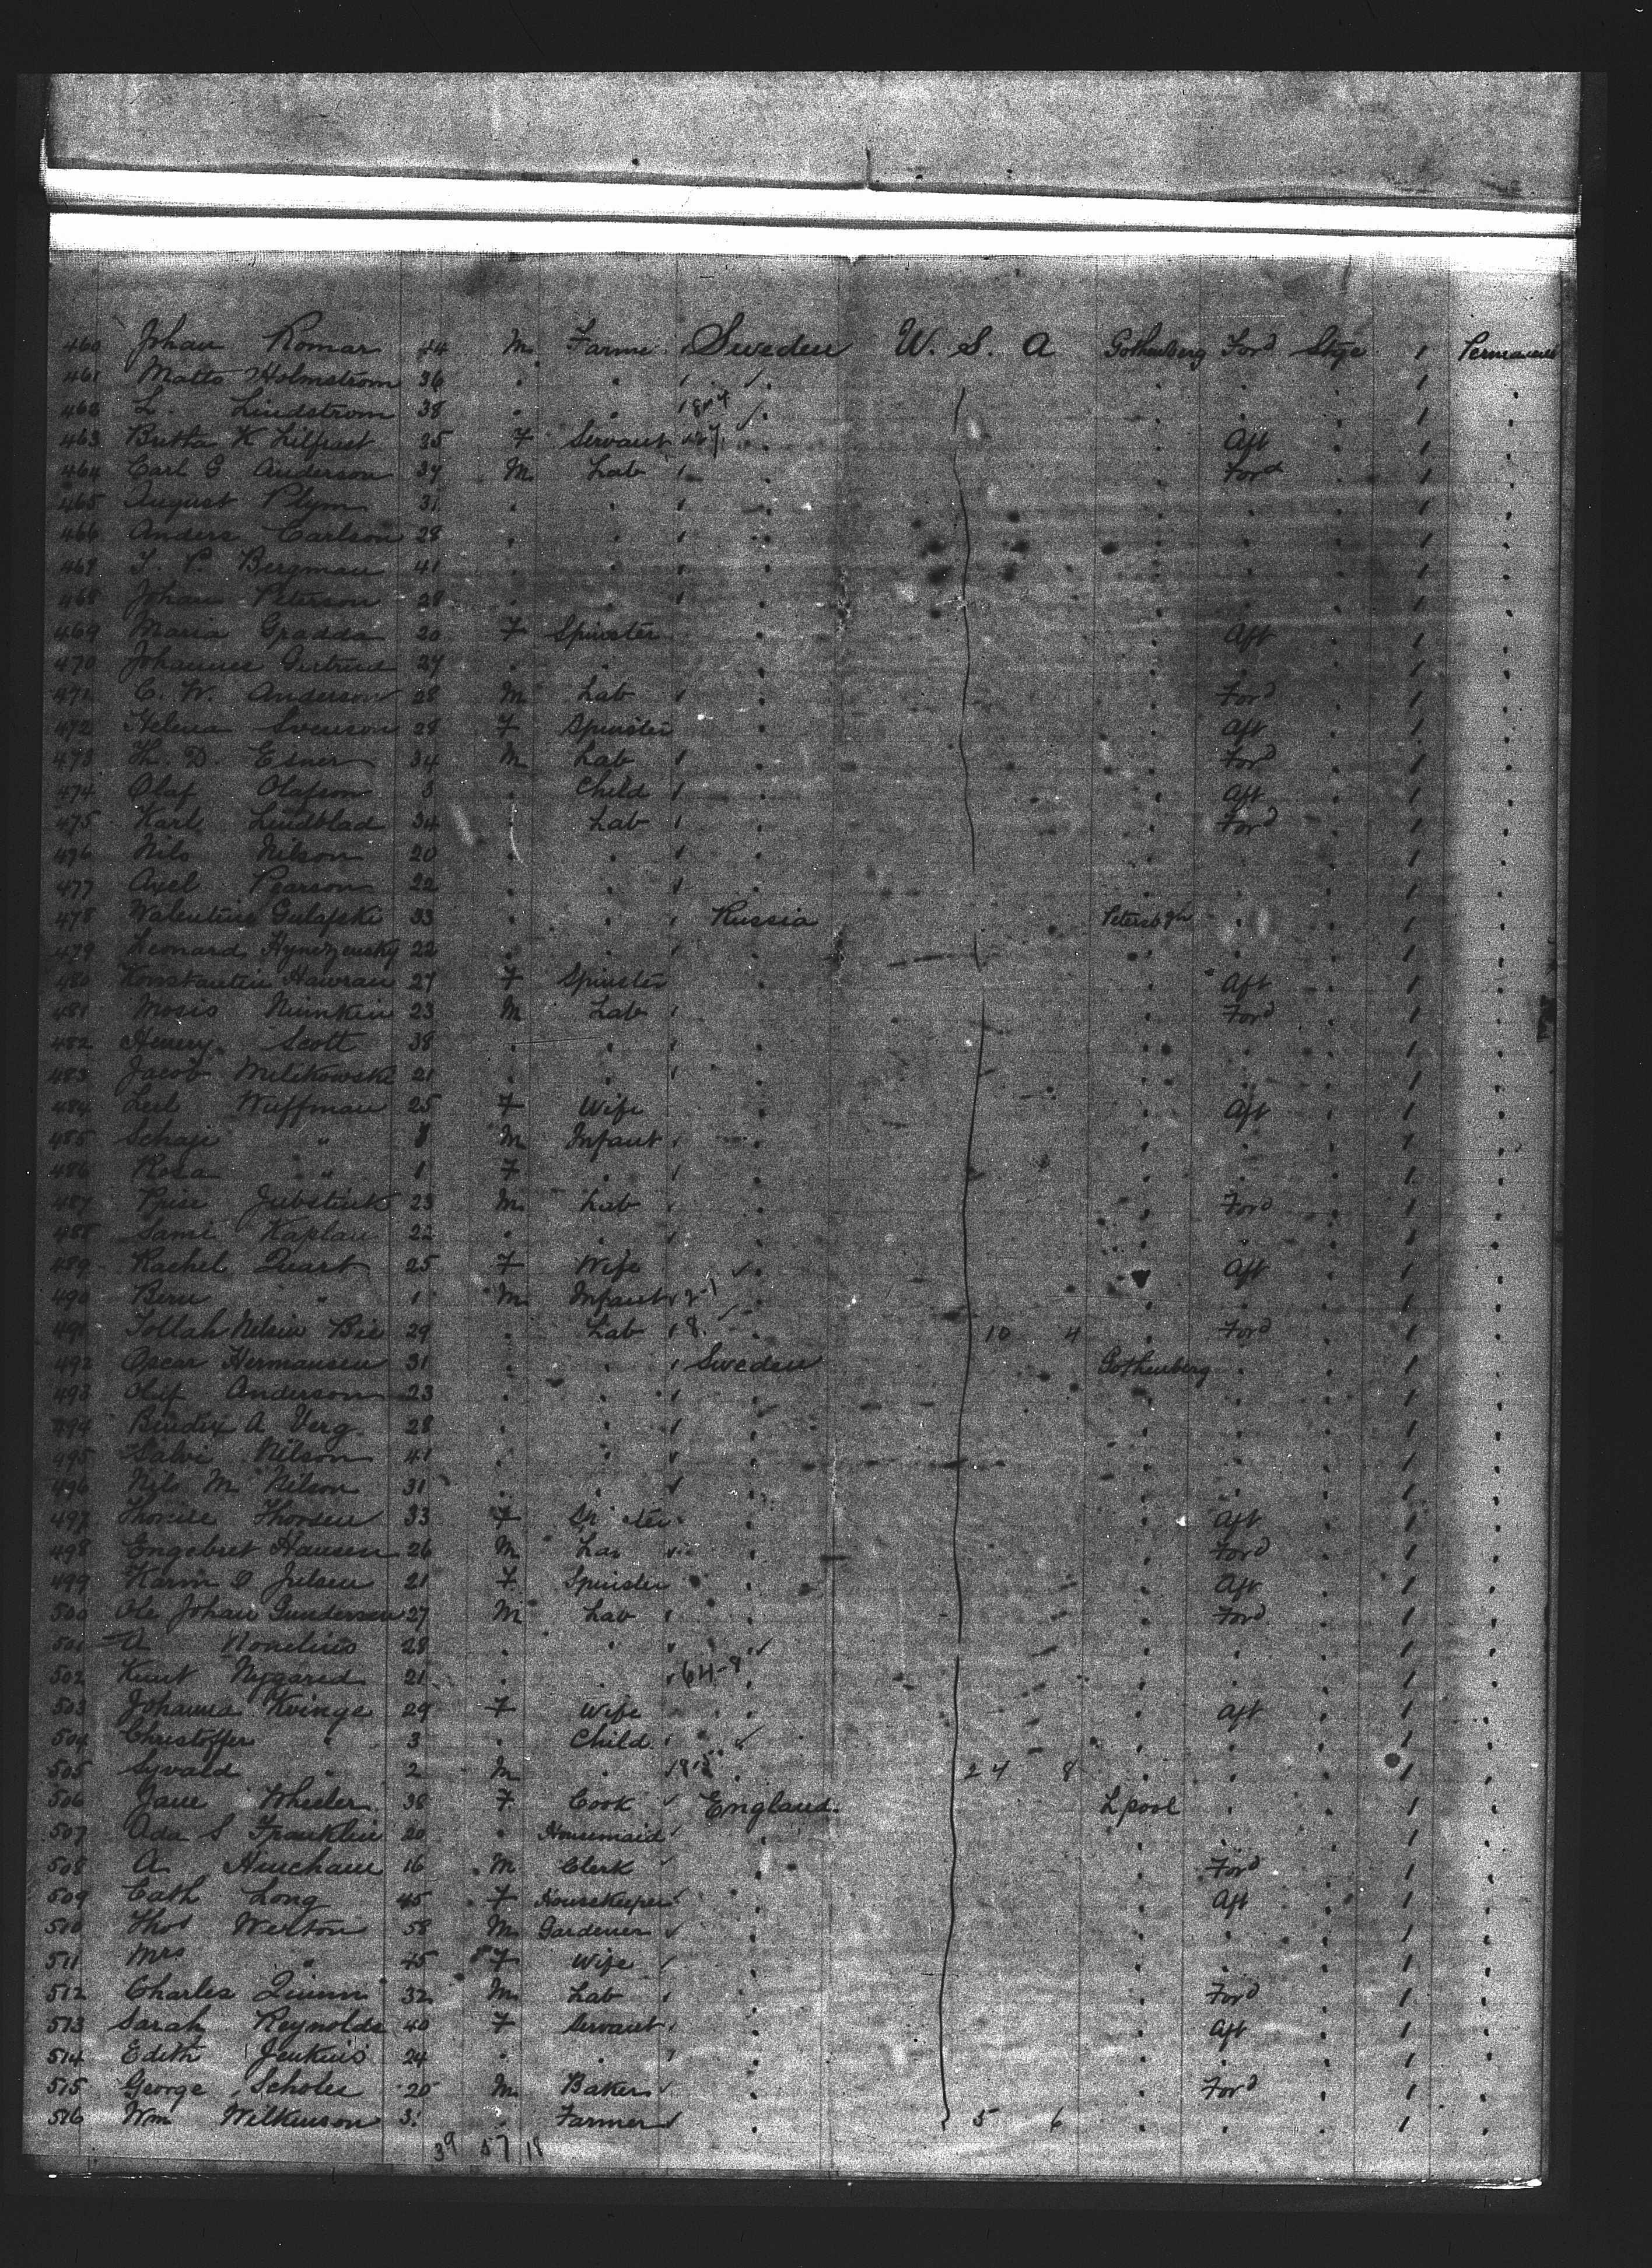 460 Johan Romar 44 M Farmer Sweden U. S. A Gothenberg Ford Stge 1 Permanent
461 Matts Holmstrom 36 . . . . . . 1 .
462 L. Lindstrom 38 . . . . . . 1 .
463 Britta K Lilfrast 25 F Servant . . Aft . 1 .
464 Carl G Anderson 37 M Lab . . Ford . 1 .
465 August Plym 31 . . . . . . 1 .
466 Anders Carlson 28 . . . . . . 1 .
467 J. P. Bergman 41 . . . . . . 1 .
468 Johan Peterson 28 . . . . . . 1 .
469 Maria Gradda 20 F Spinster . . Aft . 1 .
470 Johannes Gertrud 27 . . . . . . 1 .
471 C. W. Anderson 28 M Lab . . Ford . 1 .
472 Helena Svenson 28 F Spinster . . Aft . 1 .
473 Th. D. Esner 34 M Lab . . Ford . 1 .
474 Olaf Olafson 3 . Child . . Aft . 1 .
475 Karl Lindblad 34 Lab . . Ford . 1 .
476 Nils Nilson 20 . . . . . . 1 .
477 Axel Pearson 22 . . . . . . 1 .
478 Walentine Gulafski 33 . . Russia Petersbgh . . 1 .
479 Leonard 22 . . . . . . 1 .
480 Konstantin Hawran 27 F Spinster . . Aft . 1 .
481 Mosis Ninnkin 23 M Lab . . Ford . 1 .
482 Henry Scott 38 . . . . . . 1 .
483 Jacob Milikowski 21 . . . . . . 1 .
484 Leil Wuffman 25 F Wife . . Aft . 1 .
485 Schaje " 1 M Infant . . . . 1 .
486 Rosa " 1 F . . . . . 1 .
487 Jubstick 23 M Lab . . Ford . 1 .
488 Sami Kaplan 22 . . . . . . 1 .
489 Rachel Quart 25 F Wife . . Aft . 1 .
490 Beru " 1 M Infant . . . . 1 .
491 Tollah Nilsin Bie 29 . Lab . 10 4 . Ford . 1 .
492 Oscar Hermansen 31 . . Sweden Gothenberg . . 1 .
493 Olif Anderson 23 . . . . . . 1 .
494 Bendix A Berg 28 . . . . . . 1 .
495 Halvi Nilson 41 . . . . . . 1 .
496 Nils M Nilson 31 . . . . . . 1 .
497 Thorden 33 F . . Aft . 1 .
498 Engebret Hansen 26 M Lab . . Ford . 1 .
499 Karin O Julsen 21 F Spinster . . Aft . 1 .
500 Ole Johan Gunderson 27 M Lab . . Ford . 1 .
501 A Nonelius 28 . . . . . . 1 .
502 Knut Nygared 21 . . 64-8 . . . . 1 .
503 Johanna Kvinge 29 F Wife . . Aft . 1 .
504 Christoffer " 3 . Child . . . . 1 .
505 Syvald " 2 M . . 24 8 . . . 1 .
506 Jane Wheeler 38 F Cook England. Lpool . . 1 .
507 Ada S Franklin 20 . Housemaid . . . . 1 .
508 A. Hincham 16 M Clerk . . Ford . 1 .
509 Cath Long 45 F Housekeeper . . Aft . 1 .
510 Thos Welton 58 M Gardener . . . . 1 .
511 Mrs " 45 F Wife . . . . 1 .
512 Charles Quinn 32 M Lab . . Ford . 1 .
513 Sarah Reynolds 40 F Servant . . Aft . 1 .
514 Edith Jenkins 24 . . . . . . 1 .
515 George Scholes 20 M Baker . . Ford . 1 .
516 Wm Wilkinson 31 . Farmer . 5 6 . . . 1 .
39 57 18